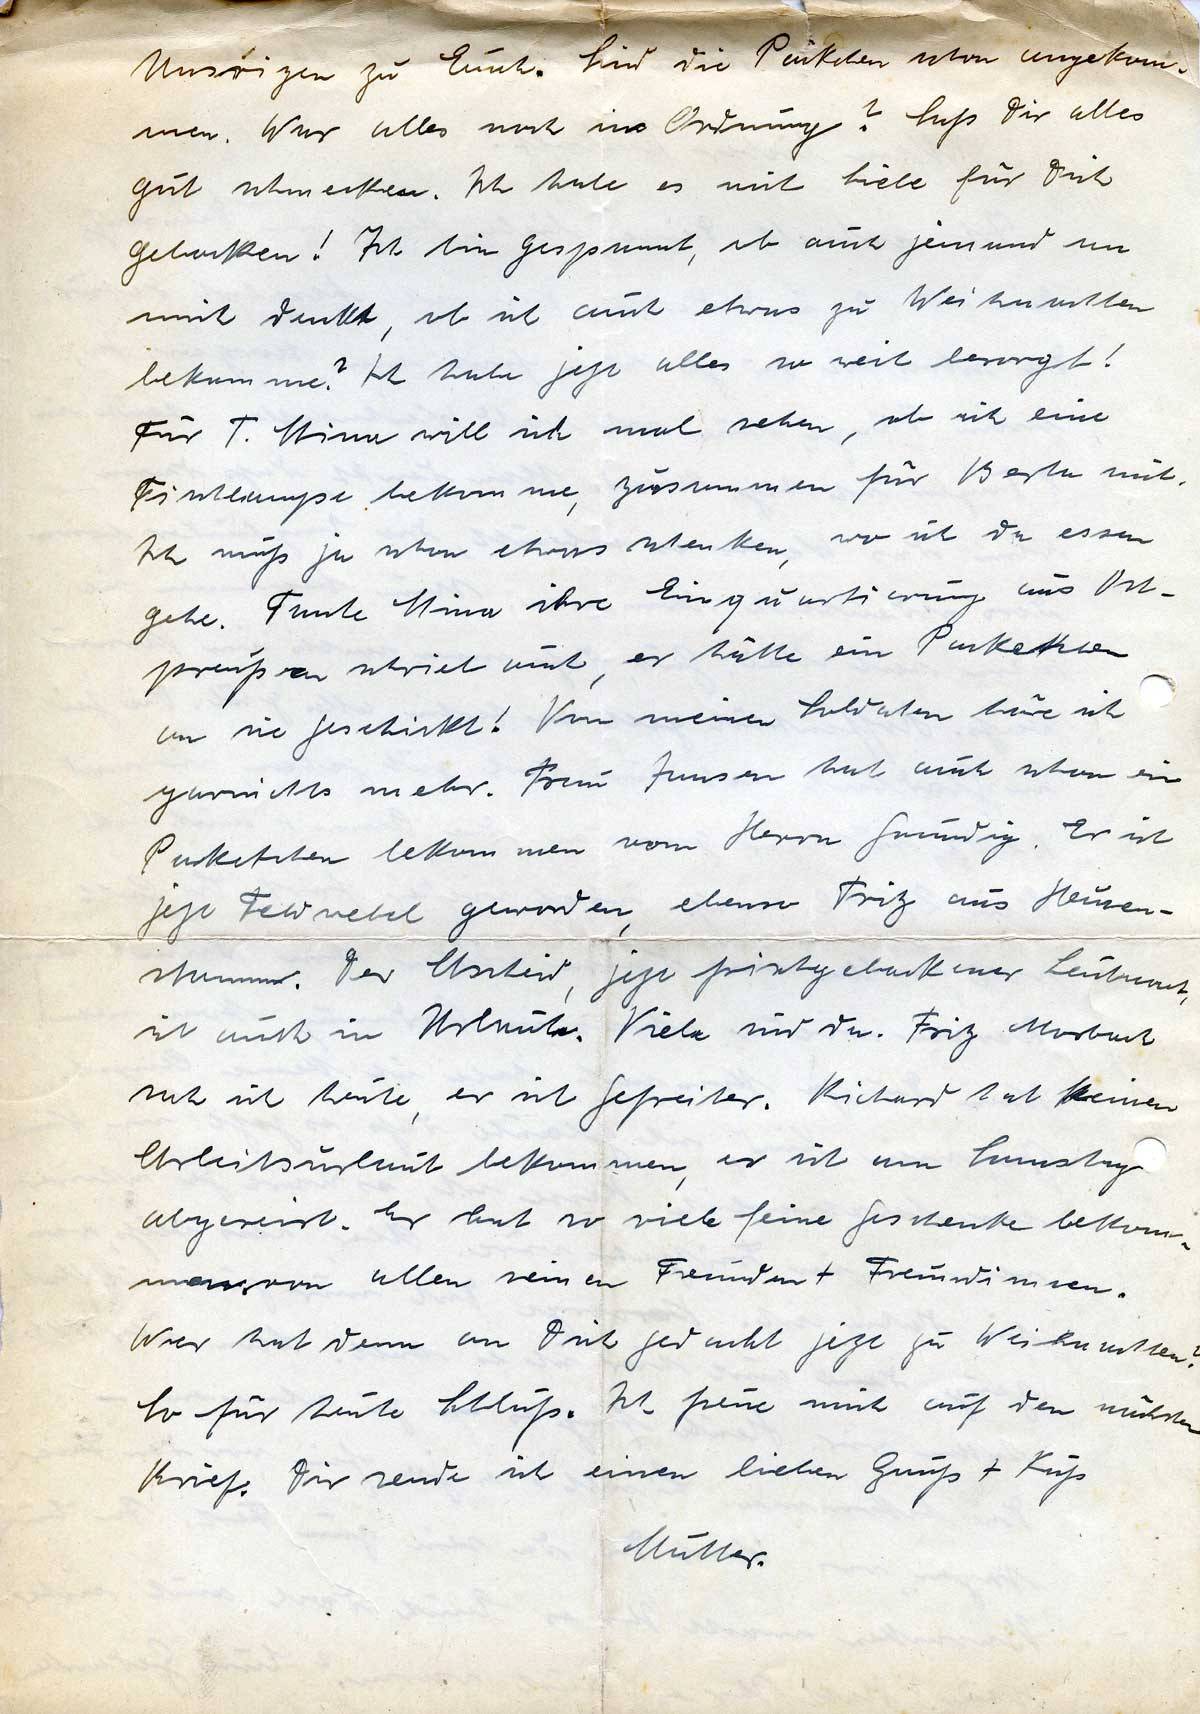 Unsrigen zu Euch. Sind die Päckchen schon angekom-
men. War alles noch in Ordnung? Laß Dir alles
gut schmecken. Ich habe es mit Liebe für Dich
gebacken! Ich bin gespannt, ob auch jemand an
mich denkt, ob ich auch etwas zu Weihnachten
bekomme? Ich habe jetzt alles so weit besorgt!
Für T. Mina will ich mal sehen, ob ich eine
Tischlampe bekomme, zusammen für Berta mit.
Ich muß ja schon etwas schenken, wo ich da essen
gehe. Tante Mina ihre Einquartierung aus Ost-
preußen schrieb auch, er hätte ein Paketchen
an sie geschickt! Von meinen Soldaten höre ich
garnichts mehr. Frau Jansen hat auch schon ein
Paketchen bekommen vom Herrn Gründig. Er ist
jetzt Feldwebel geworden, ebenso Fritz aus Heusen-
stamm. Der Scheid, jetzt frischgebackener Leutnant,
ist auch in Urlaub. Viele sind da. Fritz Morbach
sah ich heute, er ist Gefreiter. Richard hat keinen
Arbeitsurlaub bekommen, er ist am Samstag
abgereist. Er hat so viele feine Geschenke bekom-
men von allen seinen Freunden + Freundinnen.
Wer hat denn an Dich gedacht jetzt zu Weihnachten?
So für heute Schluß. Ich freue mich auf den nächsten
Brief. Dir sende ich einen lieben Gruß + Kuß
Mutter.